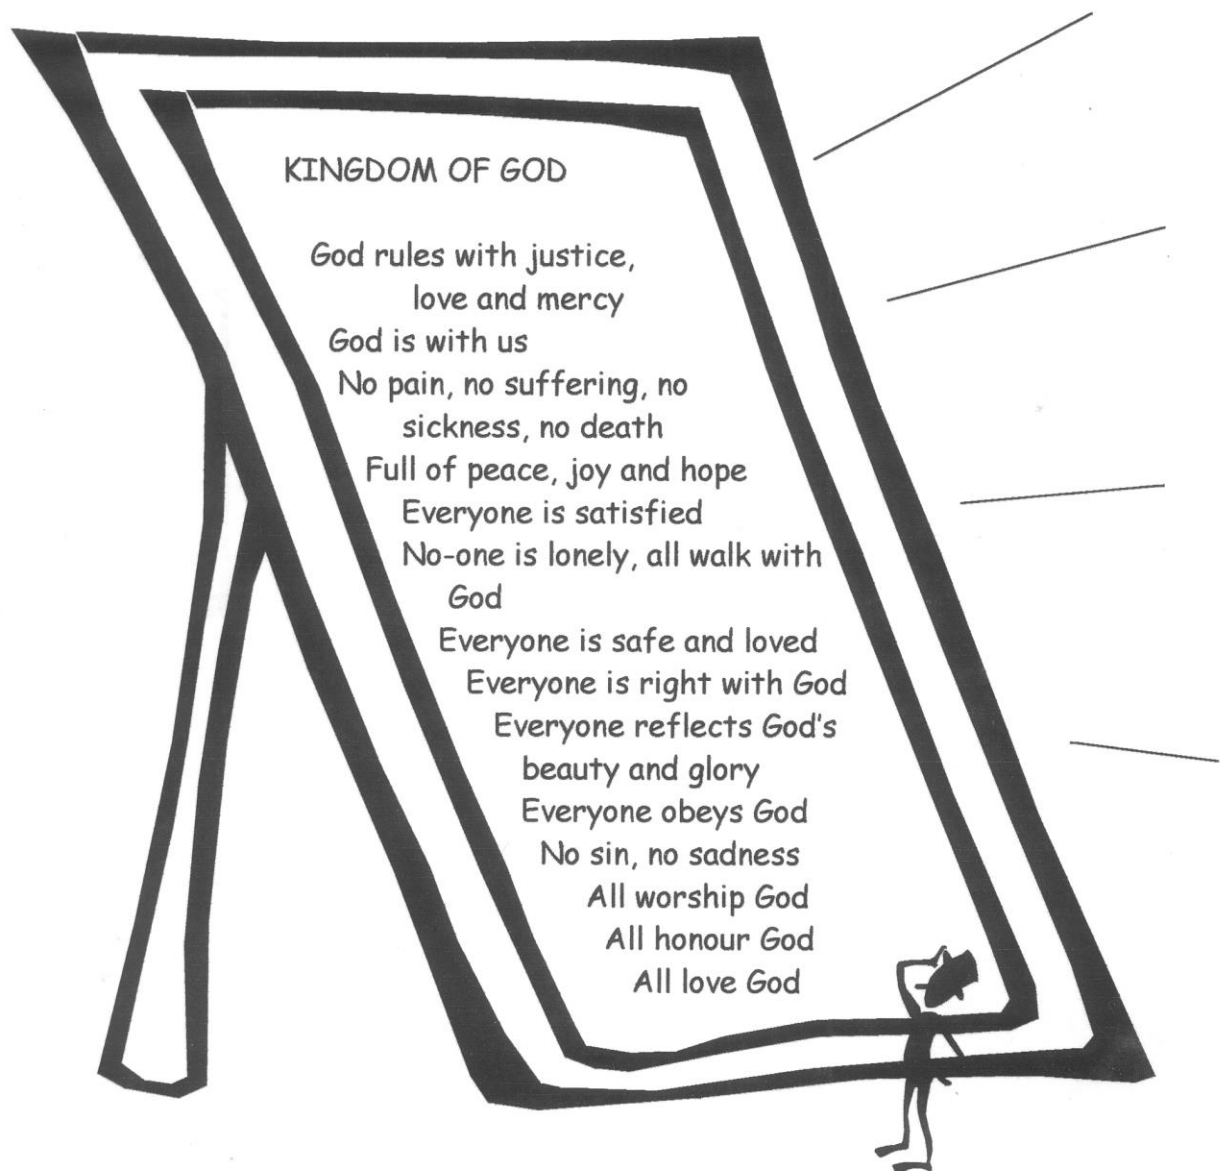 KINGDOM OF GOD
God rules with justice,
love and mercy
God is with us
No pain, no suffering, no
sickness, no death
Full of peace, joy and hope
Everyone is satisfied
No-one is lonely, all walk with
God
Everyone is safe and loved
Everyone is right with God
Everyone reflects God's
beauty and glory
Everyone obeys God
No sin, no sadness
All worship God
All honour God
All love God